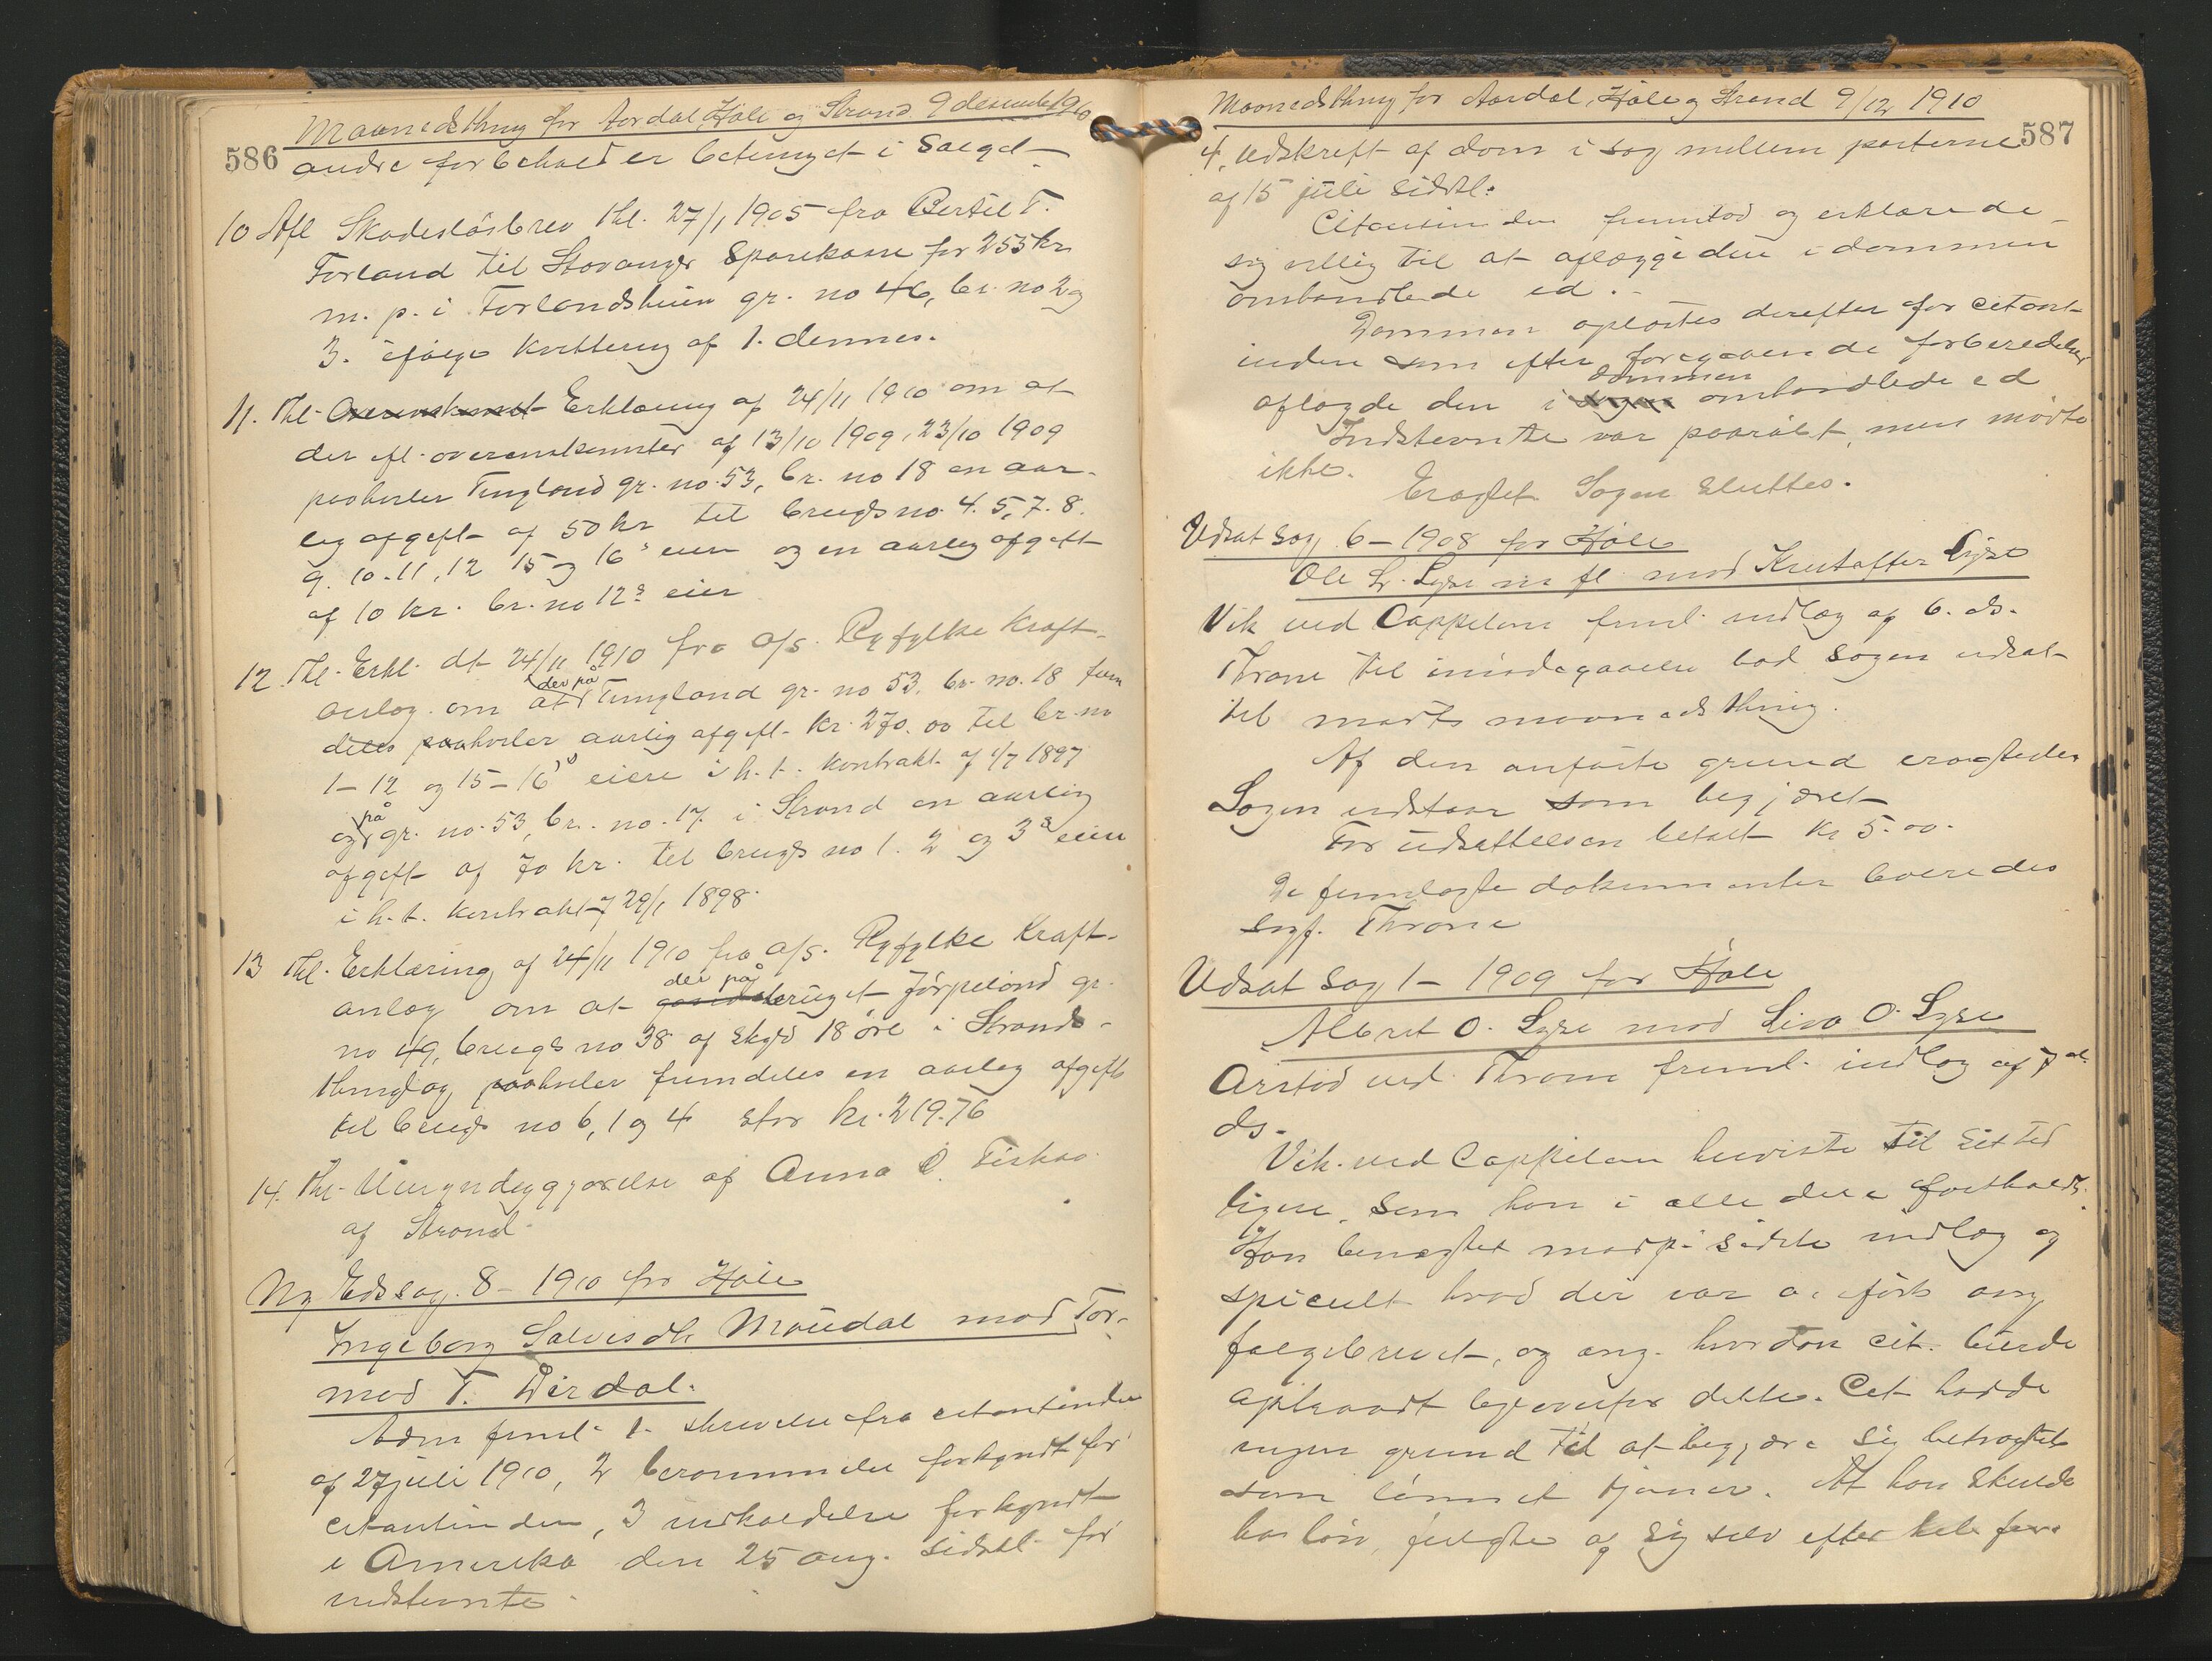 Maanedsthing for Aardal, Høle og Strand 9 desember 1910
586
andre forbehold er betinget i salget
10 Afl Skadesløsbrev thl. 27/1 1905 fra Bertil T.
Forland til Stavanger Sparekasse for 255 kr
m. p. i Forlandsheien gr. no 46, br. no 2 og
3. ifølge kvittering af 1. dennes.
11. Thl. Overenskomst Erklæring af 24/11 1910 om at
der efl. overenskomster af 13/10 1909, 23/10 1909
paahviler Tungland gr. no. 53, br. no 18 en aar-
lig afgift af 50 kr til brugsno. 4. 5, 7. 8.
9. 10. 11, 12 15 og 16s eier og en aarlig afgift
af 10 kr. br. no 12s eier
12. Thl. Erkl. dt 24/11 1910 fra a/s. Ryfylke Kraft-
anlæg om at der på Tungland gr. no 53, br. no. 18 frem
deles paahviler aarlig afgift kr. 270.00 til br. no
1-12 og 15-16s eiere i h. t. kontrakt af 1/7 1897
og på gr. no. 53, br. no. 17 i Strand en aarlig
afgift af 70 kr. til brugs no 1. 2 og 3s eiere
i h. t. kontrakt af 29/1 1898.
13 Thl. Erklæring af 24/11 1910 fra a/s. Ryfylke Kraft-
anlæg om at der på bruget Jørpeland gr.
no 49, brugs no 38 af skyld 18 øre i Strands-
thinglag paahviler fremdeles en aarlig afgift
til brugs no 6, 1 og 4 stor kr. 219.76
14. Thl. Umyndiggjørelse af Anna O.
af Strand
Ny Edssag. 8 - 1910 for Høle
Ingeborg Salvesdtr. Moudal mod Tor-
mod T. Dirdal.
Adm freml. 1. skrivelse fra citantinden
af 27 juli 1910, 2 berammelse forkyndt for
citantinden, 3 indkaldelse forkyndt
i Amerika den 25 aug. sidstl. for
indstevnte
Maanedsthing for Aardal, Høle og Strand 9/12 1910
587
4. udskrift af dom i sag mellem parterne
af 15 juli sidstl.
Citantinden fremstod og erklærede
sig villig til at aflægge den i dommen
omhandlede ed.
Dommen oplæstes derefter for citant-
inden som efter foregaaende forberedelse
aflagde den i sagen dommen omhandlede ed
Indstevnte var paaråbt, men mødte
ikke.
Eragtet Sagen sluttes.
Udsat sag 6 - 1908 for Høle
Ole L. Lyse m fl. mod Kristoffer Lyse
Vik ved Cappelen freml. indlæg af 6. ds.
Throne til imødegaaelse bad sagen udsat
til marts maanedsthing.
Af den anførte grund eragtedes
Sagen udstaar som begjæret
For udsættelsen betalt Kr 5.00.
De fremlagte dokumenter leveredes
sagf. Throne
Udsat sag 1 - 1909 for Høle
Albret O. Lyse mod Siva O. Lyse
Arstad ved Throne freml. indlæg af 7de
ds.
Vik. ved Cappelen henviste til sit tid
ligere, som han i alle dele fastholdt.
Han benægtet modp. sidste indlæg og
specielt hvad der var anført ang
følgebrevet, og ang. hvordan cit. burde
optraadt ligeoverfor dette. Cit havde
ingen grund til at begjære sig betragtet
som lønnet tjener. At han skulde
ha løn, fulgte af sig selv efter hele for-